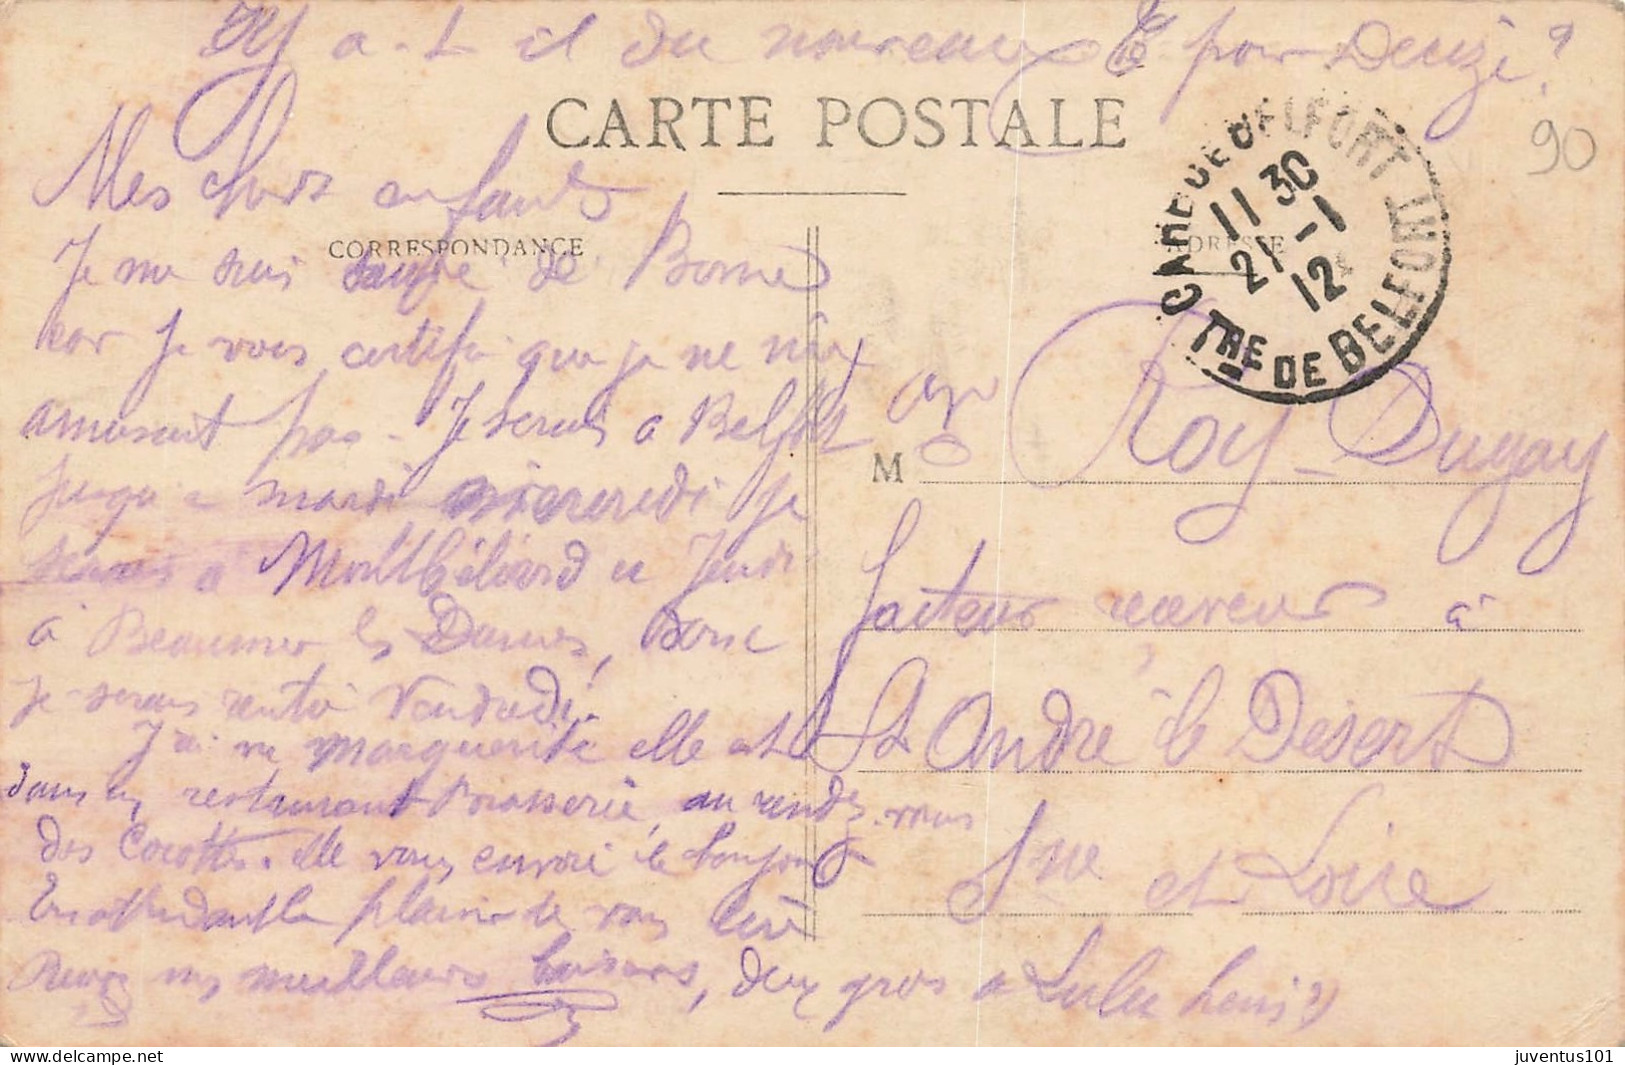 Y a-t il du nouveau pour Denzé ?
CARTE POSTALE
90
Mes chers enfants
CORRESPONDANCE
ADRESSE
Je me suis sauvé de Borne
car je vous certifie que je ne m'y
amusait pas - Je serais a Belfort
jusqu'a mardi mercredi je
serais a Montbéliard et Jeudi
à Beaumes les Dames, Donc
je serais rentré Vendredi.
J'ai vu Marguerite elle est
dans un restaurant Brasserie, au rendez-vous
des Cocottes. elle vous envoie le bonjour
En attendant le plaisir de vous lire
Recevez mes meilleurs baisers, deux gros a Lulu
GARE DE BELFORT
11 30
21 -1
12
TRE DE BELFORT
M Roy-Dugay
facteur receveur à
St André le Désert
Sne et Loire
juventus101